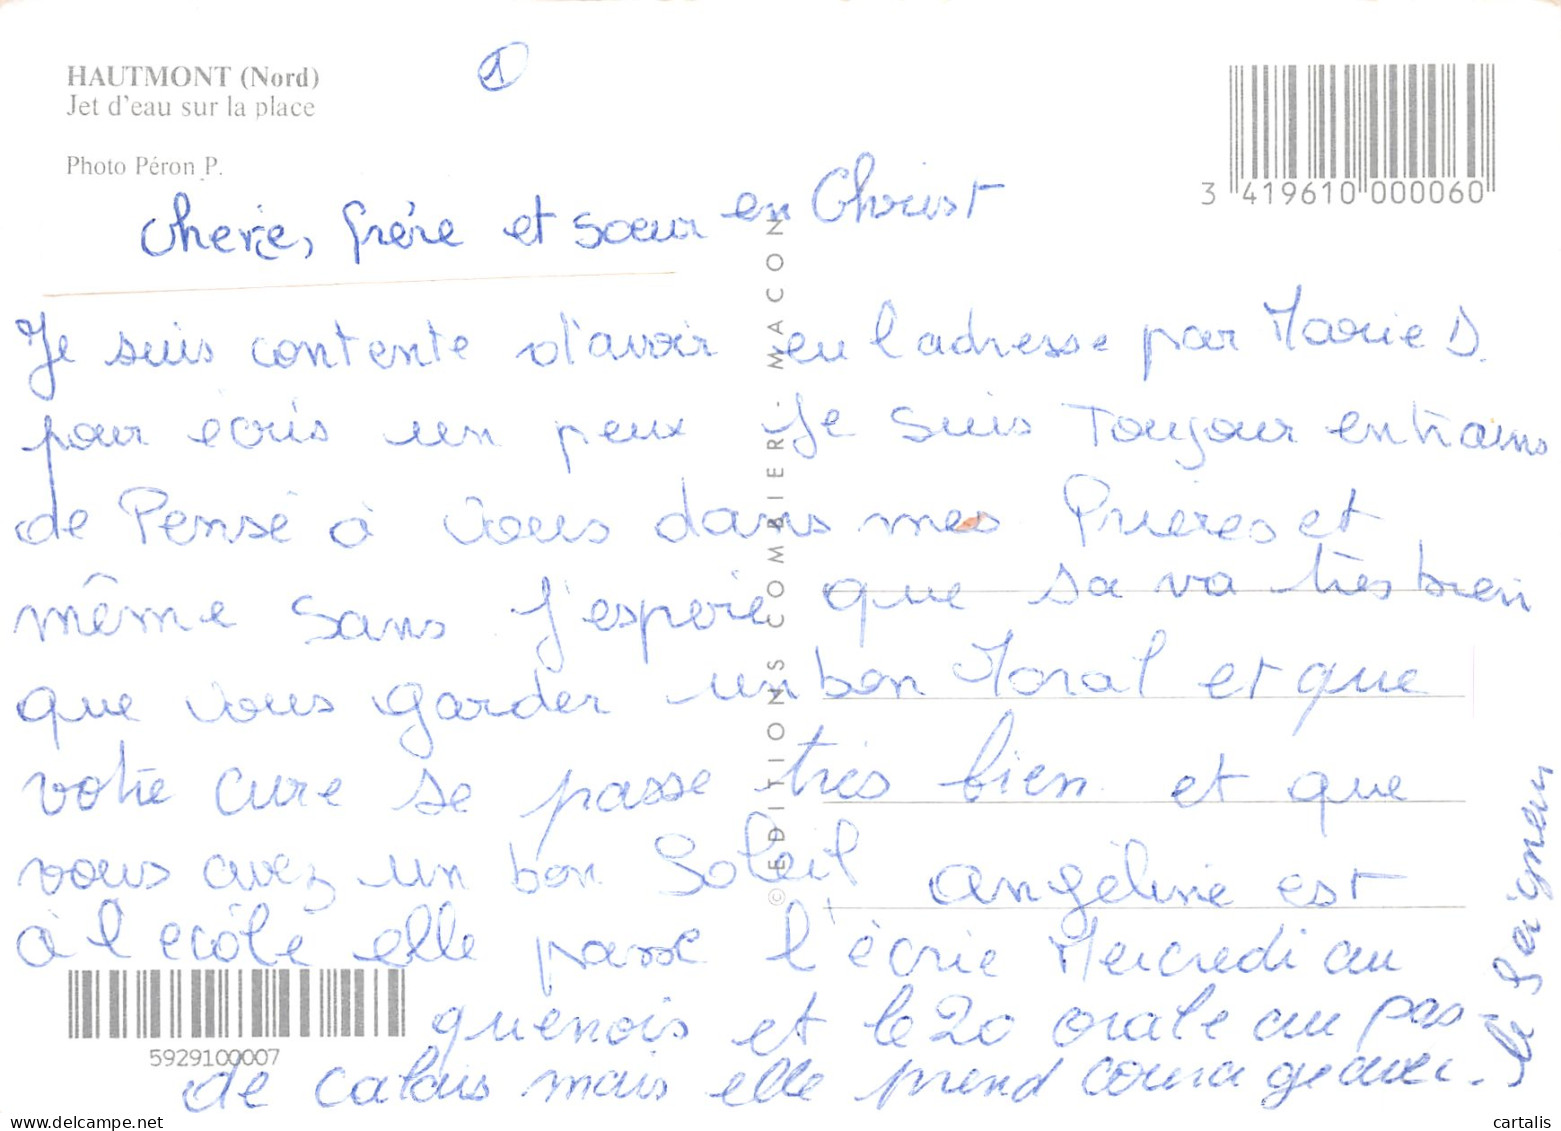 HAUTMONT (Nord)
Jet d'eau sur la place
Photo Péron P.
1
3 419610 000060
cherie, frère et sœur en Christ
Je suis contente d'avoir eu l'adresse par Marie D.
pour ecris un peux Je suis Toujour entrains
de Pensé à vous dans mes Prieres et
même sans j'espere que sa va très bien
que vous garder un bon Moral et que
votre cure se passe très bien et que
vous avez un bon Soleil angéline est
à l'ecole elle passe l'écrie Mercredi au
quenois et le 20 orale au pas-
de calais mais elle prend courage avec
le Seigneur
© EDITIONS COMBIER - MACON
5929100007
cartalis